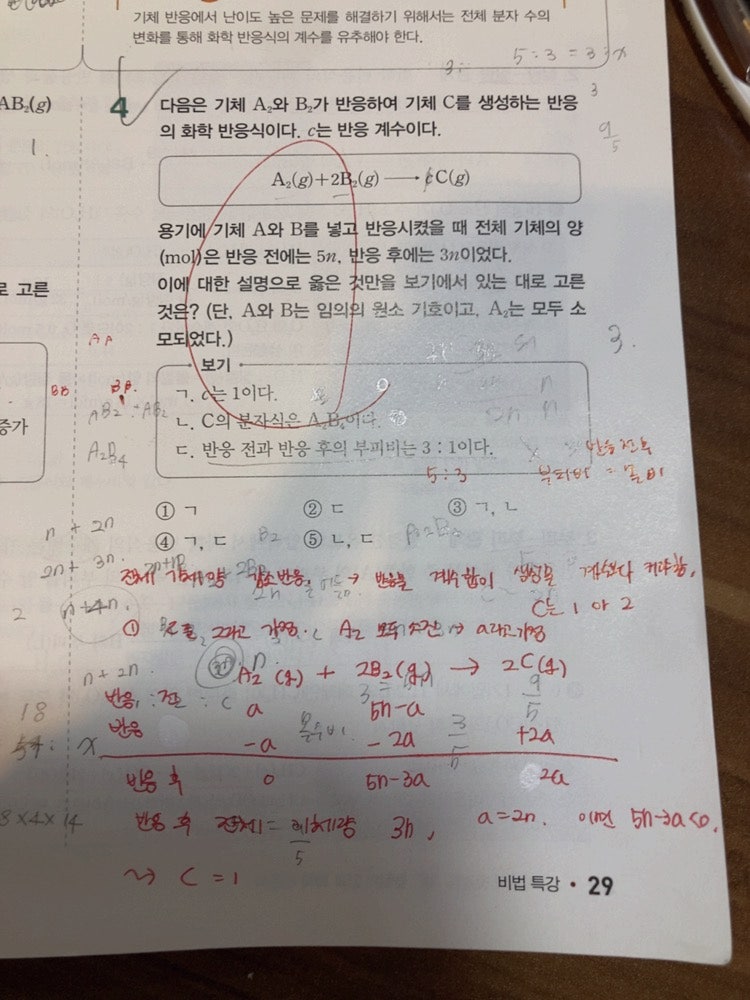 기체 반응에서 난이도 높은 문제를 해결하기 위해서는 전체 분자 수의
변화를 통해 화학 반응식의 계수를 유추해야 한다.
5:3 = 3:x
3
9/5
AB₂(g)
1.
4 다음은 기체 A₂와 B₂가 반응하여 기체 C를 생성하는 반응
의 화학 반응식이다. c는 반응 계수이다.
A₂(g)+2B₂(g) ⟶ cC(g)
용기에 기체 A와 B를 넣고 반응시켰을 때 전체 기체의 양
(mol)은 반응 전에는 5n, 반응 후에는 3n이었다.
이에 대한 설명으로 옳은 것만을 보기에서 있는 대로 고른
것은? (단, A와 B는 임의의 원소 기호이고, A₂는 모두 소
모되었다.)
로 고른
3.
보기
ㄱ. c는 1이다.
ㄴ. C의 분자식은 A₂B₄이다.
ㄷ. 반응 전과 반응 후의 부피비는 3 : 1이다.
5:3
반응 전후
부피비 = 몰비
증가
BB
A₂B₄
① ㄱ
② ㄷ
③ ㄱ, ㄴ
④ ㄱ, ㄷ
⑤ ㄴ, ㄷ
n + 2n
2n + 3n.
n+4n.
전체 기체양 감소반응. → 반응물 계수합이 생성물 계수보다 커야함.
C는 1 or 2
① 2라고 가정. A₂ 모두 소진 → a라고 가정
n + 2n
A₂(g) + 2B₂(g) → 2C(g)
반응 전 a 5n-a
반응 -a -2a +2a
반응 후 0 5n-3a 2a
18
반응 후 전체 기체양 3n, a=2n. 이면 5n-3a<0.
8×4×14
↝ C = 1
비법 특강 • 29